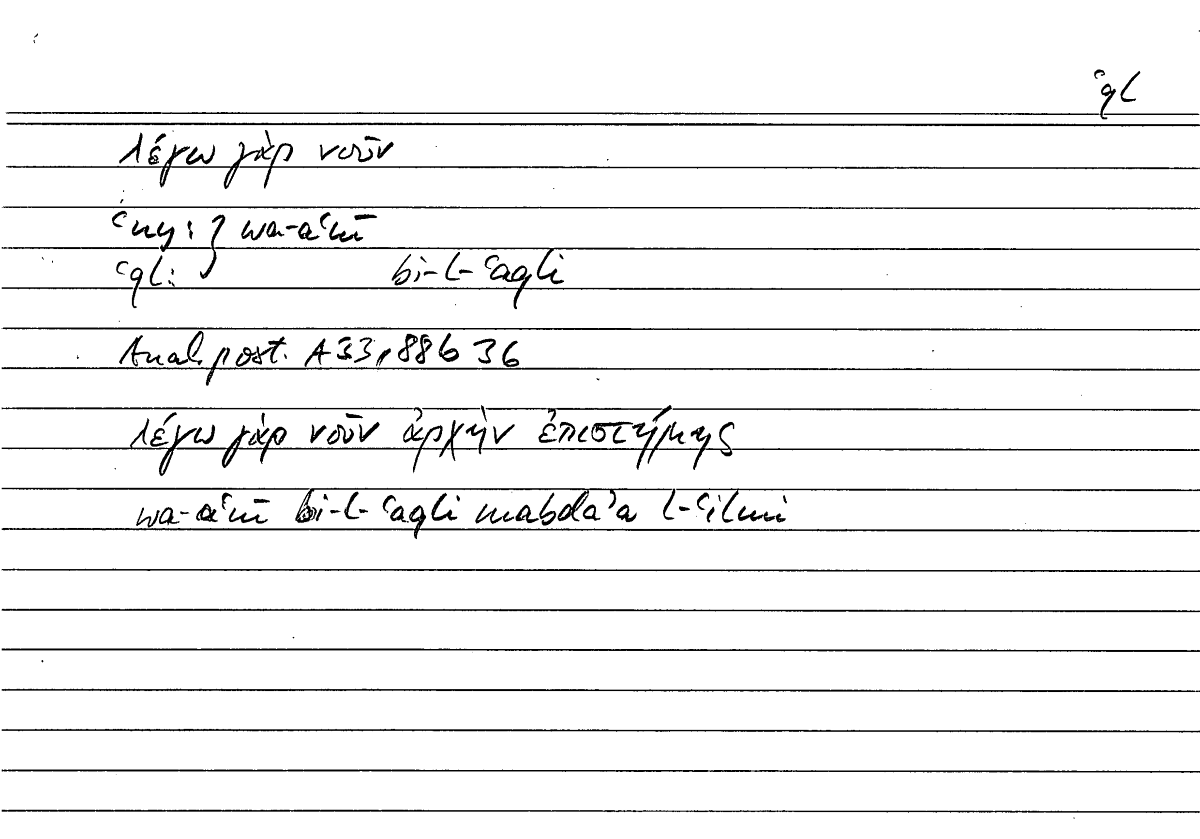 ʿql
λέγω γὰρ νοῦν
ʿny: } wa-aʿnī
ʿql: bi-l-ʿaqli
Anal. post. A 33, 88b 36
λέγω γὰρ νοῦν ἀρχὴν ἐπιστήμης
wa-aʿnī bi-l-ʿaqli mabdaʾa l-ʿilmi